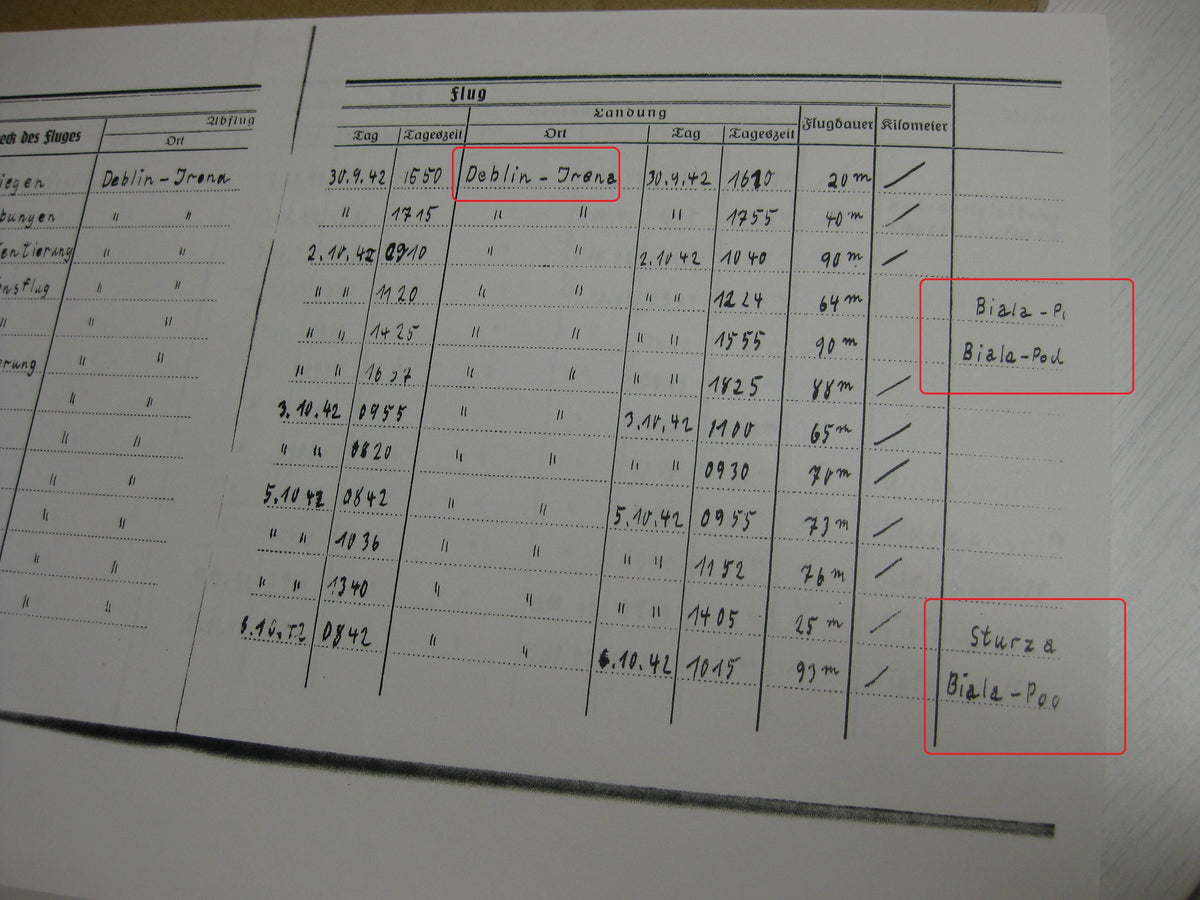 Flug
Abflug Landung
eck des Fluges Ort Tag Tageszeit Ort Tag Tageszeit Flugdauer Kilometer
iegen Deblin-Irena 30.9.42 1550 Deblin-Irena 30.9.42 1610 20m /
bungen " " " 1715 " " " 1755 40m /
entierung " " 2.10.42 0910 " " 2.10.42 1040 90m /
nsflug " " " " 1120 " " " " 1224 64m Biala-P
" " " " " 1425 " " " " 1555 90m Biala-Pod
erung " " " " " " " " 1825 88m /
" " 3.10.42 0955 " " 3.10.42 1100 65m /
" " " " 0820 " " " " 0930 70m /
" " 5.10.42 0842 " " 5.10.42 0955 73m /
" " " " 1036 " " " " 1152 76m /
" " " " 1340 " " " " 1405 25m / Sturza
" " 0842 " " 6.10.42 1015 93m / Biala-Pod